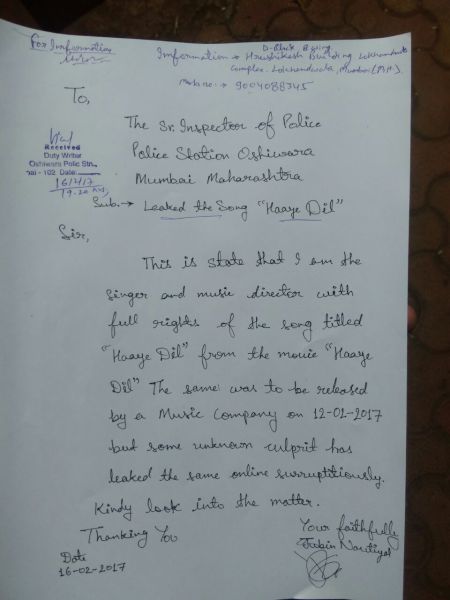 For Information
Information → D-Block Bldg
Hrushikesh Building Lokhandwala
Complex. Lokhandwala, Mumbai (M.H.)
Mob no :→ 9004088345
To,
The Sr. Inspector of Police
Police Station Oshiwara
Mumbai Maharashtra
Received
Duty Writer
Oshiwara Polic Stn.
- 102. Date:
16/2/17
Sub. → Leaked the Song "Haaye Dil"
Sir,
This is state that I am the
singer and music director with
full rights of the song titled
"Haaye Dil" from the movie "Haaye
Dil" The same was to be released
by a Music Company on 12-02-2017
but some unknown culprit has
leaked the same online surruptitiously.
Kindy look into the matter.
Thanking You
Your faithfully
Jubin Nautiyal
Date
16-02-2017